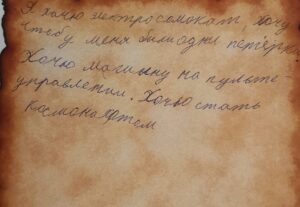 Я хочю электросамокат. Хочу
чтобу меня были одни петёрки.
Хочю машыну на пульте-
управлении. Хочью стать
космонафтом